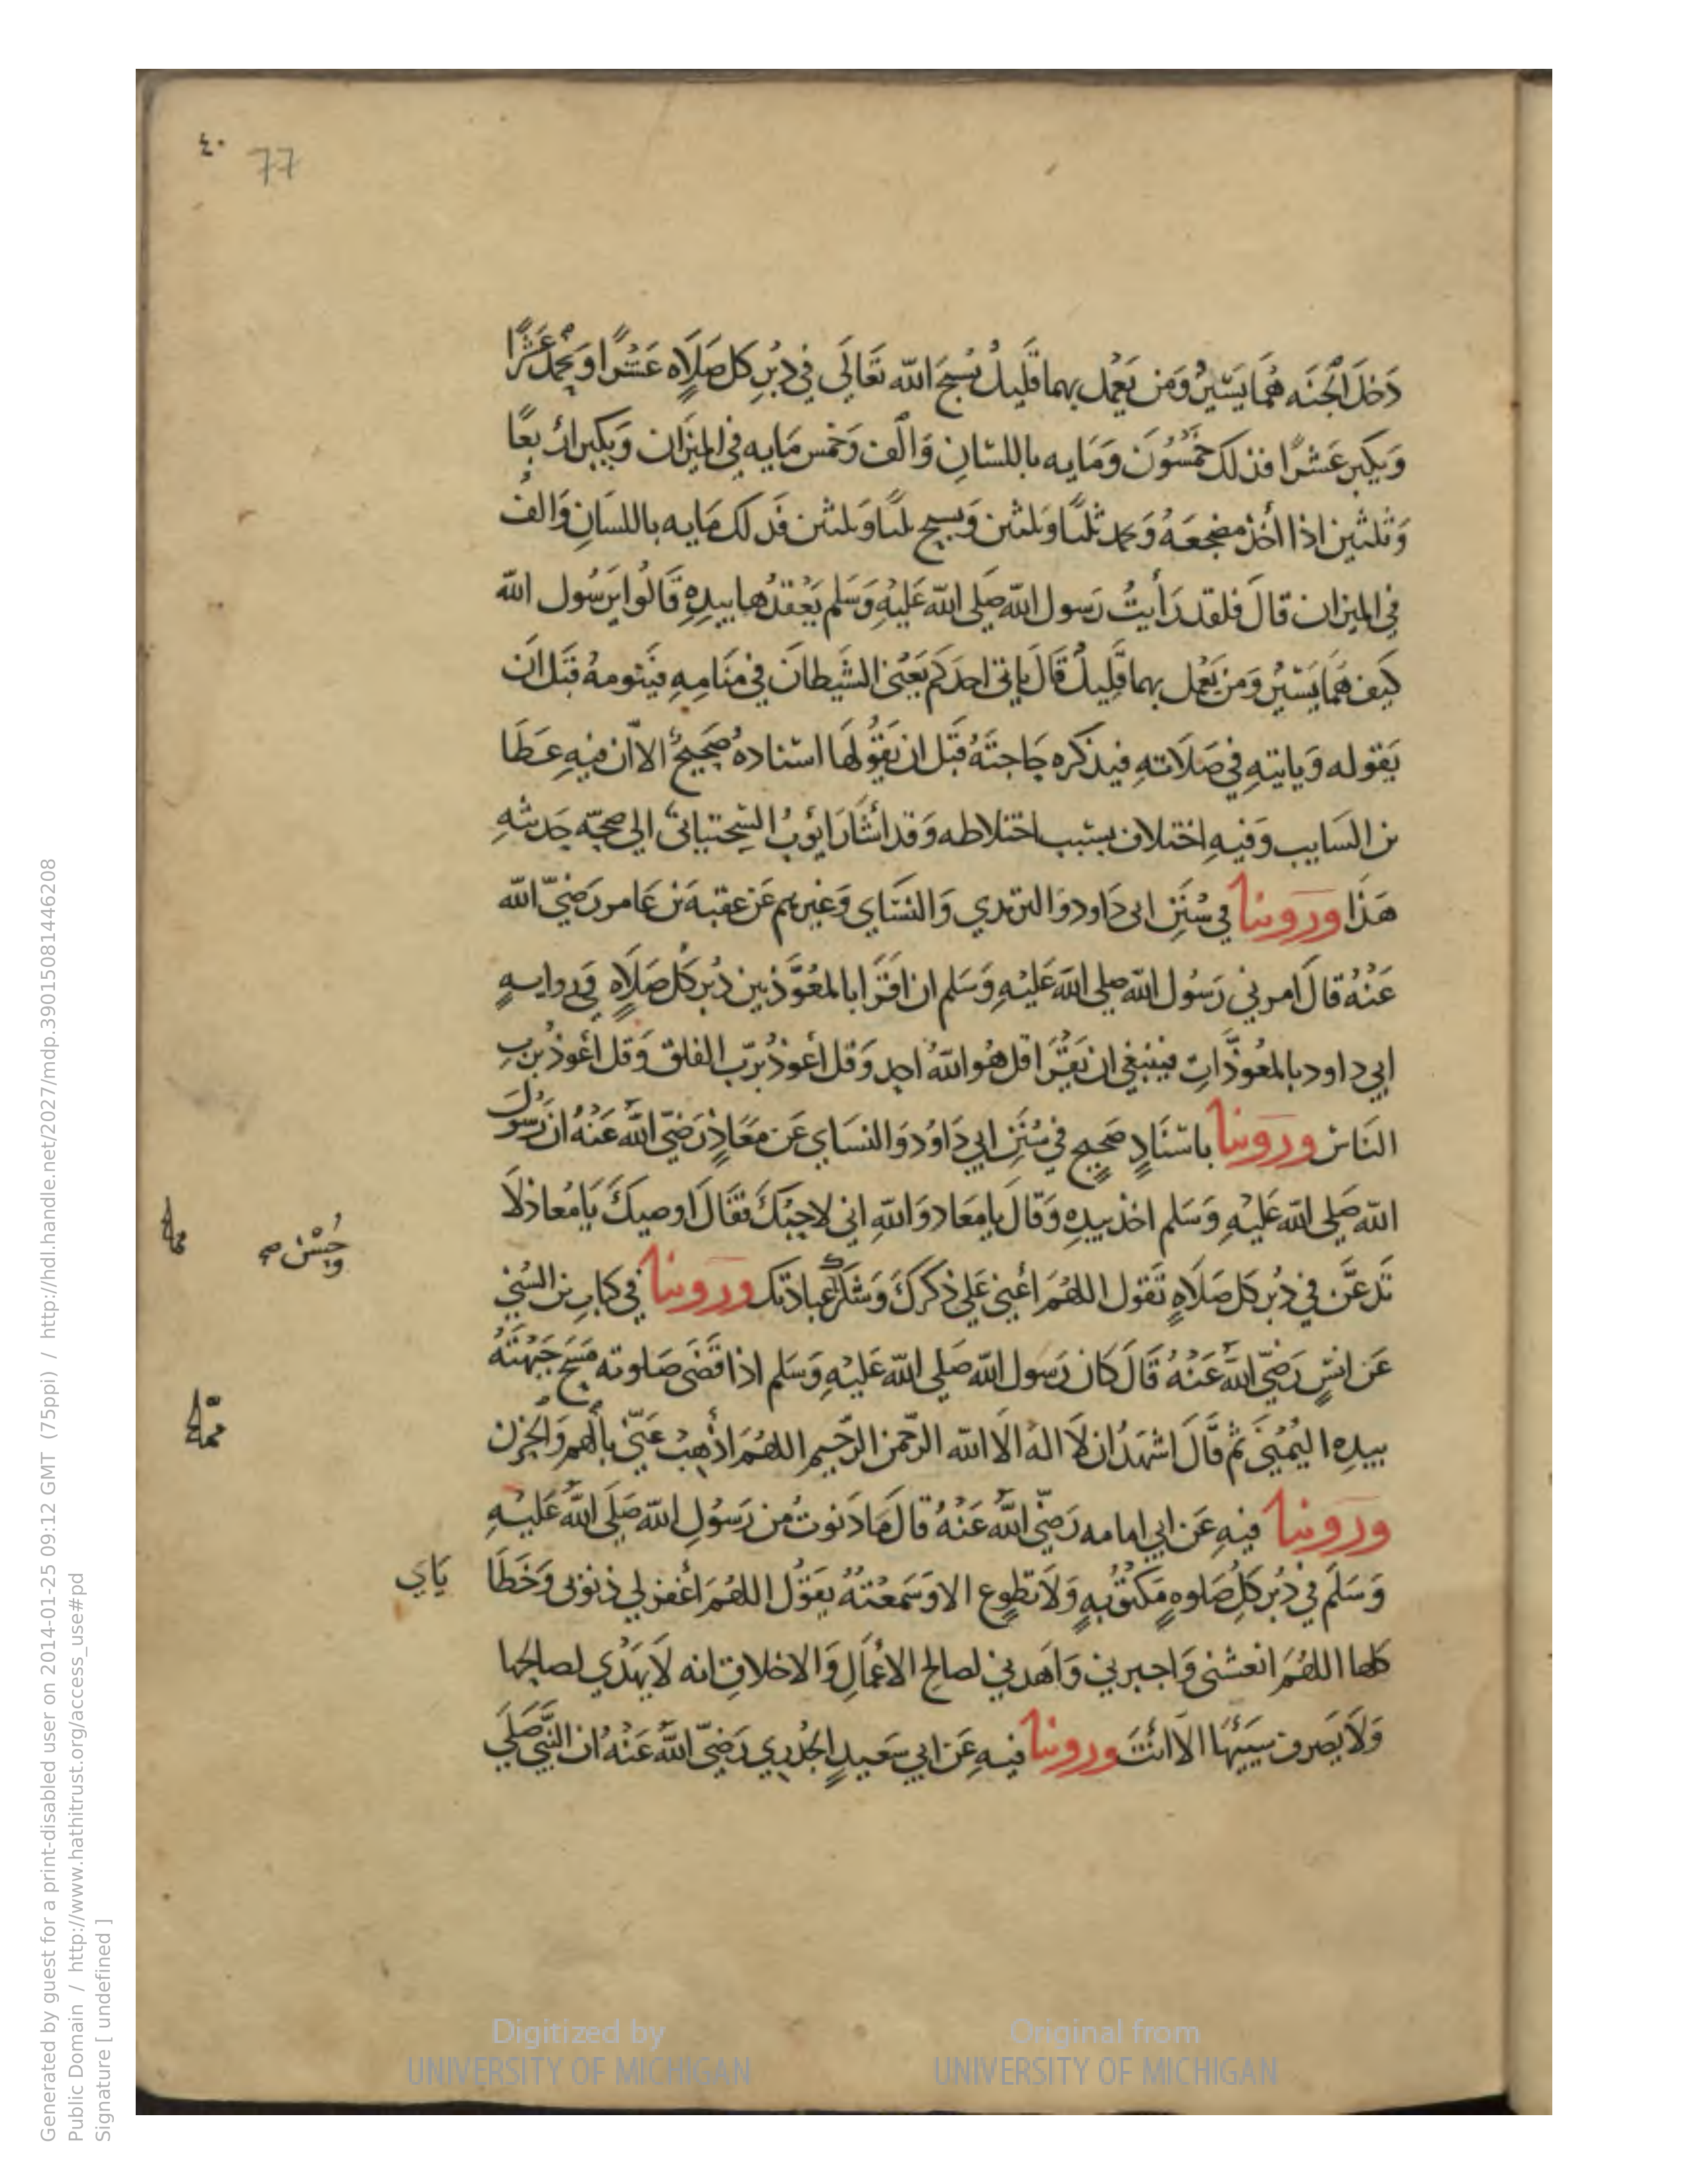 ٤٠ 77
دَخلَ الْجنَه هُمَا يَسِيرٌ وَمَن يَعْمل بهما قَليلٌ يُسبحَ الله تعَالَى في دُبُرِ كل صَلَاهٍ عَشْرًا وَيحْمدُ عَشْرًا
وَيكبر عَشرًا فذلك خمْسُونَ وَمَايه باللسَانِ وَالف وَخمس مَايه في الميزان وَيكبر ارْبعًا
وَثلثين اذا أخَذ مضجعَهُ وَيحمد ثلثًا وَثلثين وَيسبح ثلثًا وَثلثين فَذلك مَايه باللسَانِ وَالفٌ
في الميزان قالَ فلقد رَأيتُ رَسول الله صَلى الله عَليْهِ وَسَلم يَعْقدُها بيدِهِ قَالُوا يرَسُول الله
كَيف هُمَا يَسيْرٌ وَمن يَعْمل بهما قليلٌ قَالَ ياتى احدَكم يَعْنى الشَيطانَ في منَامِهِ فيَنومهُ قبَل ان
يَقوله وَياتيهِ في صَلَاتهِ فيذكره حَاجتَهُ قبَل ان يَقُولهَا اسنادهُ صَحيحٌ الا ان فيهِ عَطَا
بن السَايب وَفيهِ اختلاف بسَبب اختلاطه وَقد أشَارَ ايوبُ السختيانى الى صحَّه حَديثهِ
هَذَا وروينا في سُنَنِ ابى دَاود وَالترمذي وَالنسَاي وَغيرهم عَن عقبة بن عَامر رَضيَ الله
عَنْهُ قالَ امرني رَسُول الله صلى الله عَليْهِ وَسَلم ان اقرَا بالمعُوَّذتين دُبر كل صَلَاهٍ وَفي روايهٍ
ابي داود بالمعُوذَّاتِ فينبغي ان يَقْرَا قل هُو اللهُ احد وَقل أعوذ برَب الفلق وَقل أعوذ برب
النَاس وروينا باسْنَادٍ صَحيحٍ في سُنَنِ ابي دَاوُد وَالنسَاي عَن معَاذٍ رَضيَ اللهُ عَنْهُ ان رَسُولَ
الله صَلى الله عَليْهِ وَسَلم اخذ بيدِهِ وَقالَ يا معَاذ وَاللهِ اني لاحبكَ فقَالَ اوصيكَ يَا مُعاذ لَا
تَدعَن في دُبر كل صَلَاهٍ تَقول اللهُمَ أعني عَلى ذكركَ وَشكرك عبادتك وروينا في كتابِ بن السُني
وَحُسْن صح
عَن انسٍ رَضيَ اللهُ عَنْهُ قَالَ كان رَسول الله صَلى الله عَليْهِ وَسَلم اذا قَضَى صَلوته مَسَحَ جَبْهتَهُ
بيدِه اليُمْنى ثم قَالَ اشهَدُ ان لَا الهَ الا الله الرحمن الرَّحيم اللهُمَ اذْهِبْ عَنّي بألهم وَالحزن
وروينا فيهِ عَن ابي امامه رَضيَ اللهُ عَنْهُ قالَ مَا دَنوت من رَسُولِ الله صَلَى اللهُ عَليْهِ
وَسَلَم في دُبر كلِ صَلوهٍ مَكتُوبهٍ وَلَا تطوعٍ الا وَسَمعْتهُ يَقُول اللهُمَ أغفر لي ذنوبى وَخَطَا
يَاي
كلها اللهُمَ انعشنى وَاجبرني وَاهدني لصالح الاعْمَالِ وَالاخلاقِ انه لَا يهْدي لصالحها
وَلَا يَصرف سَيئهَا الا انْتَ وروينا فيهِ عَن ابي سَعيدٍ الخُدري رَضيَ اللهُ عَنْهُ ان النبيَ صَلَى
Digitized by
UNIVERSITY OF MICHIGAN
Original from
UNIVERSITY OF MICHIGAN
Generated by guest for a print-disabled user on 2014-01-25 09:12 GMT (75ppi) / http://hdl.handle.net/2027/mdp.39015081446208
Public Domain / http://www.hathitrust.org/access_use#pd
Signature [ undefined ]